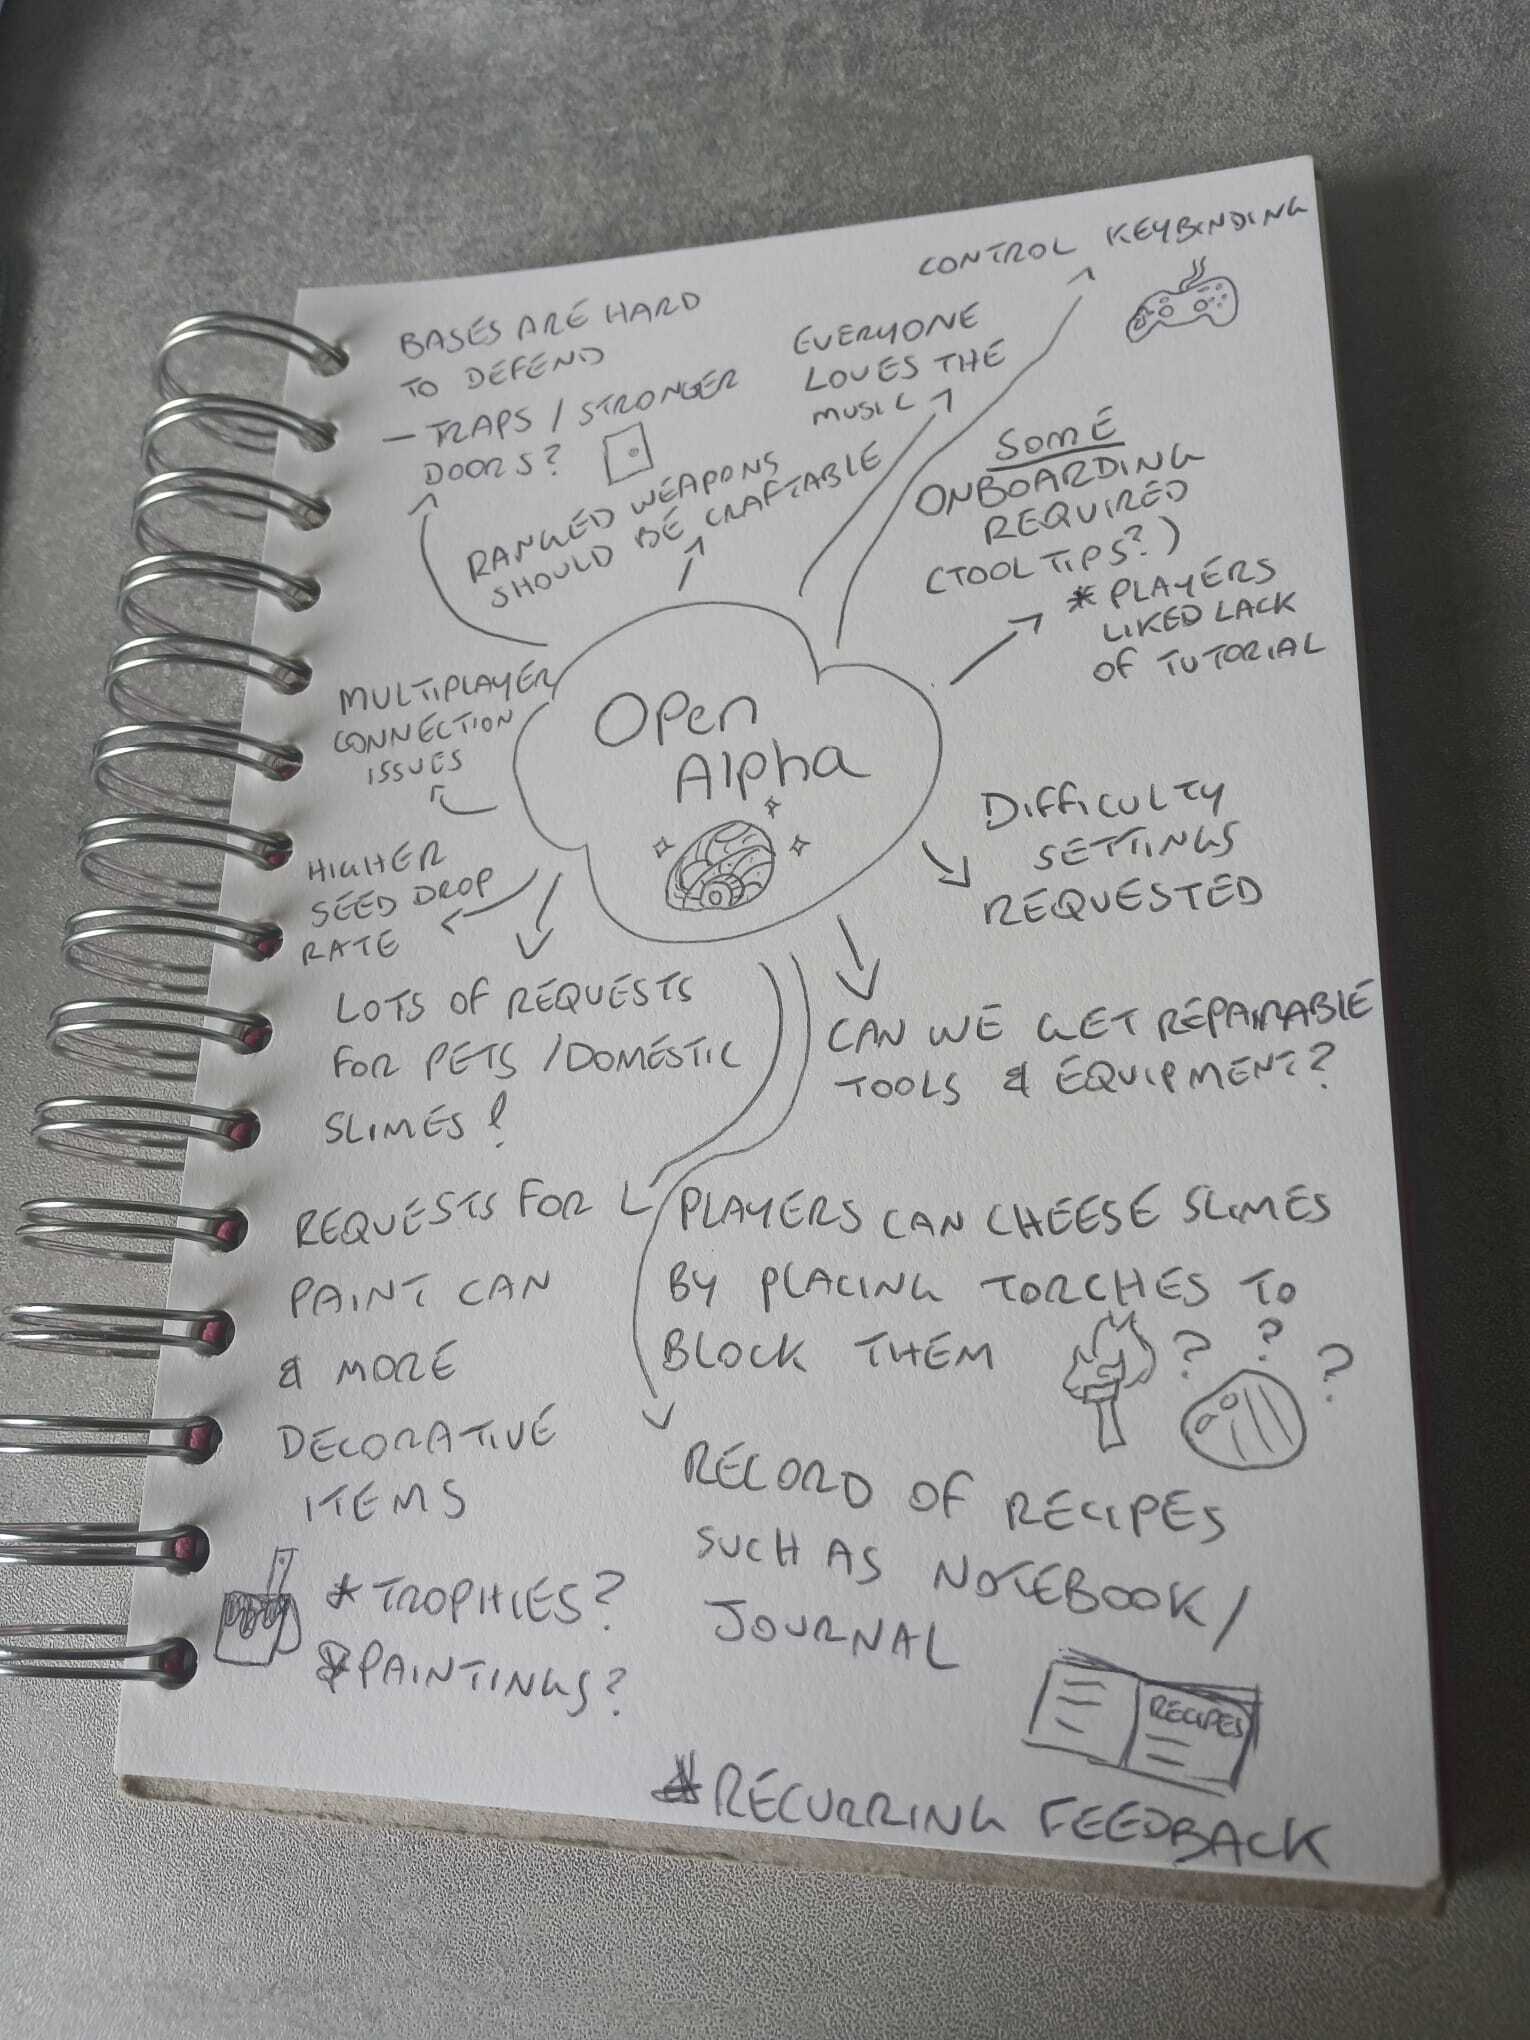 CONTROL KEYBINDING
BASES ARE HARD
TO DEFEND
- TRAPS / STRONGER
DOORS?
EVERYONE
LOVES THE
MUSIC
RANGED WEAPONS
SHOULD BE CRAFTABLE
SOME
ONBOARDING
REQUIRED
(TOOL TIPS?)
* PLAYERS
LIKED LACK
OF TUTORIAL
MULTIPLAYER
CONNECTION
ISSUES
Open
Alpha
DIFFICULTY
SETTINGS
REQUESTED
HIGHER
SEED DROP
RATE
LOTS OF REQUESTS
FOR PETS / DOMESTIC
SLIMES!
CAN WE GET REPAIRABLE
TOOLS & EQUIPMENT?
REQUESTS FOR
PAINT CAN
& MORE
DECORATIVE
ITEMS
* TROPHIES?
* PAINTINGS?
PLAYERS CAN CHEESE SLIMES
BY PLACING TORCHES TO
BLOCK THEM
? ? ?
RECORD OF RECIPES
SUCH AS NOTEBOOK/
JOURNAL
RECIPES
#RECURRING FEEDBACK